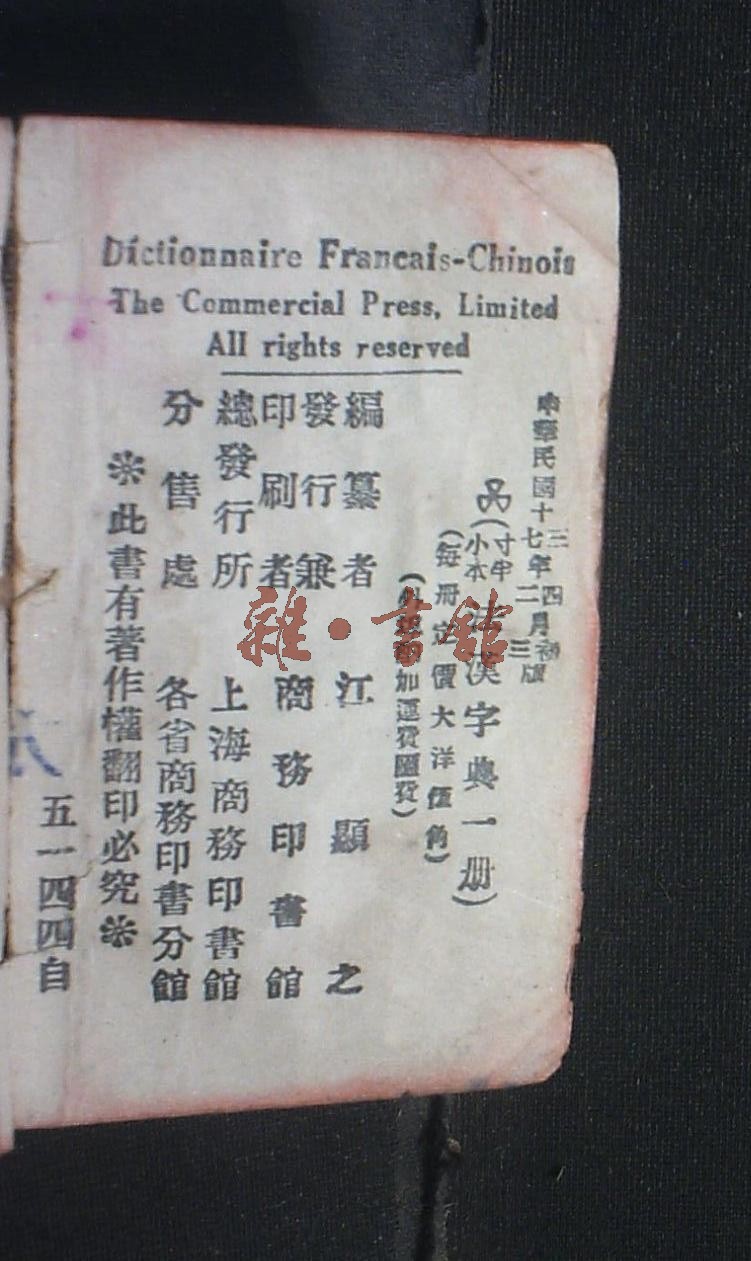 Dictionnaire Francais-Chinois
The Commercial Press, Limited
All rights reserved
中華民國十三年四月初版
十七年二月三版
(寸半小本法漢字典一册)
(每册定價大洋伍角)
加運費匯費)
編纂者 江顯之
發行兼印刷者 商務印書館
總發行所 上海商務印書館
分售處 各省商務印書分館
※此書有著作權翻印必究※
五一四四自
雜·書館